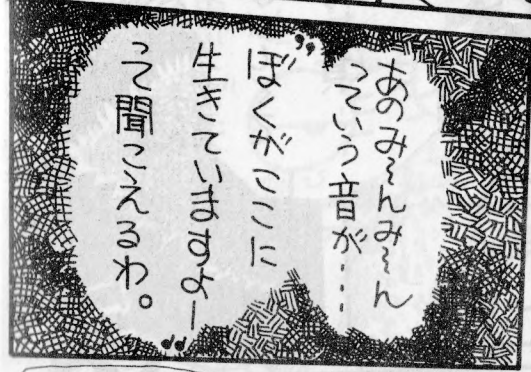 あのみ〜んみ〜ん
っていう音が・・・
〝ぼくがここに
生きていますよー〟
って聞こえるわ。